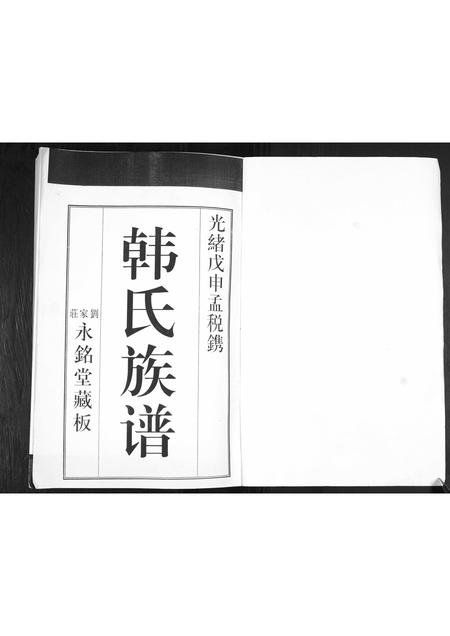 光緒戊申孟税鐫
韩氏族谱
劉家莊
永銘堂藏板